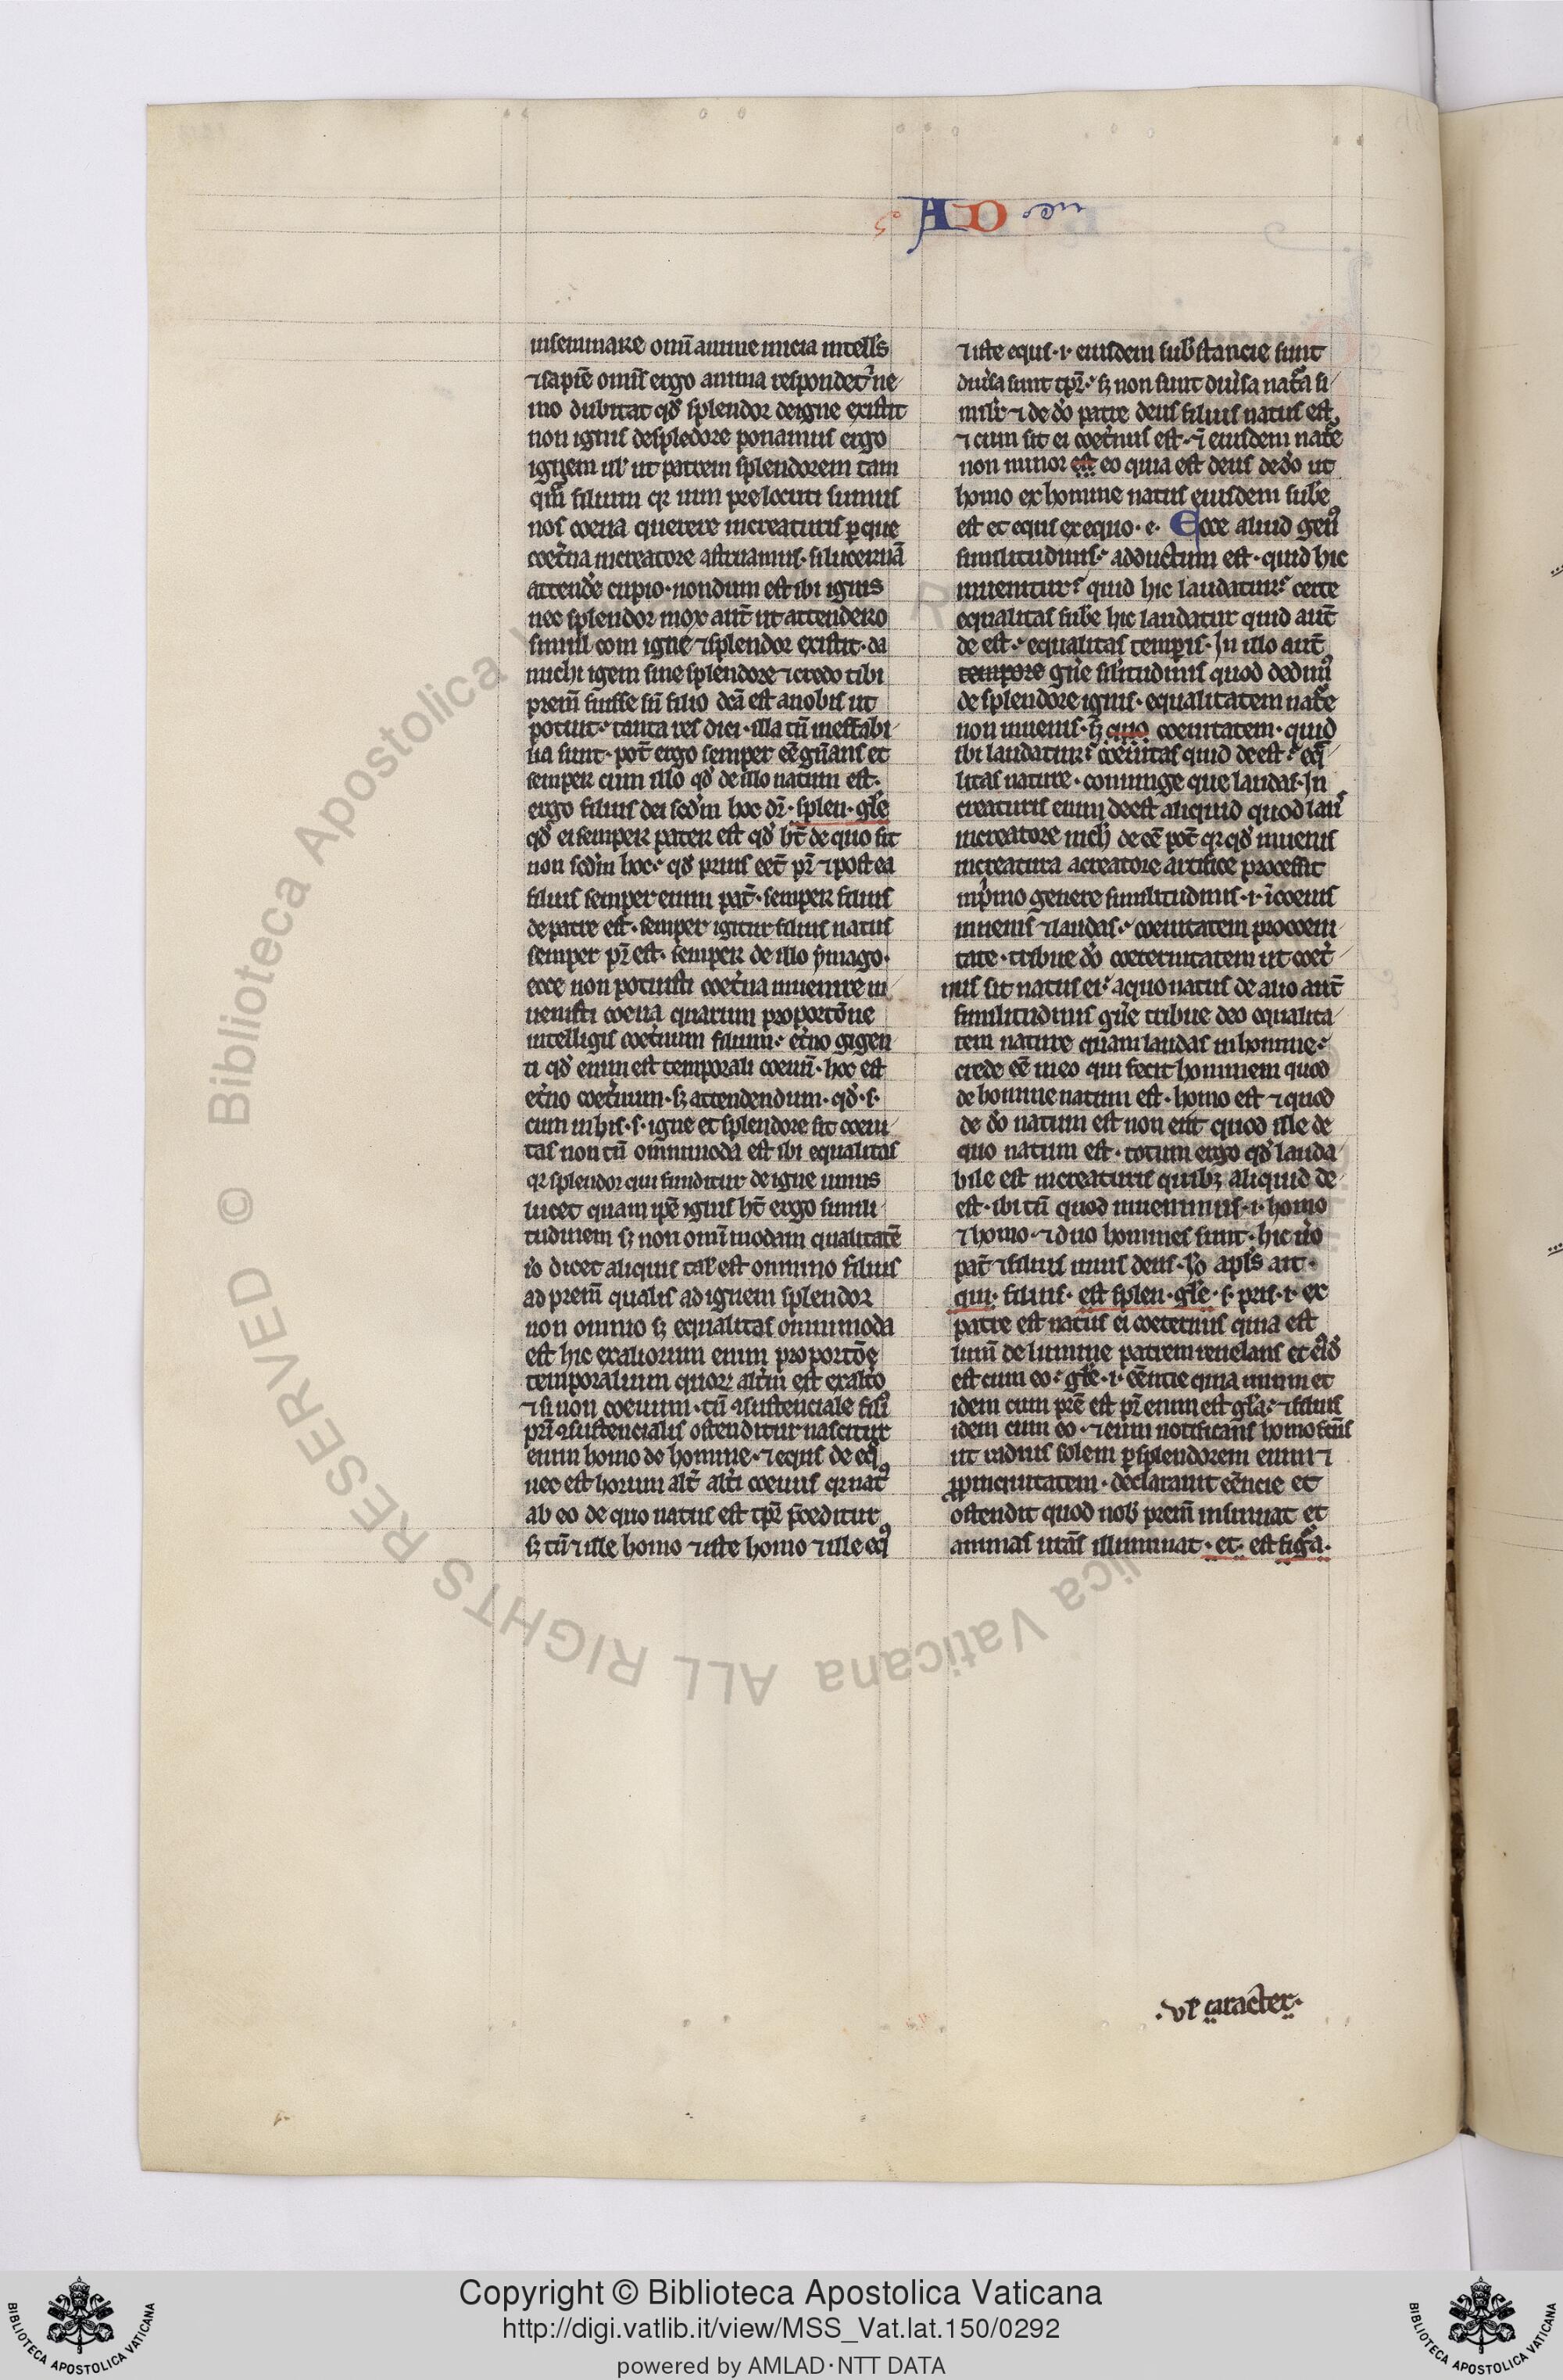 AD
inseminare omĩ anime inicia intell's
⁊ sapiẽ omĩs ergo anima respondet ne
mo dubitat qđ splendor de igne existit
non ignis de spledore ponamus ergo
ignem ut patrem splendorem tam
filium qr iam prelocuti sumus
nos coeua querere in creaturis
coet'na in creatore astruamus · si lucernã
attende cupio · nondum est ibi ignis
nec splendor mox aut̃ ut attendero
simul com igne ⁊ splendor existit · da
michi igem sine splendore ⁊ credo tibi
prem̃ fuisse sñ filio dcã est a nobis ut
potuit tanta res dici · illa tñ ineffabi
lia sunt · pot̃ ergo semper eẽ gñans et
semper cum illo qđ de illo natum est ·
ergo filius dei sedm hoc dr̃ · splen · gl'e
qđ ei semper pater est qđ ht̃ de quo sit
non sedm hoc qđ prius eet̃ pr̃ ⁊ post ea
filius semper enim pat̃ · semper filius
de patre est · semper igitur filius natus
semper pr̃ est · semper de illo ymago ·
ecce non potuisti coet'na inuenire in
uenisti coeua quarum proportõne
intelligis coet'num filium et'no gigen
ti qđ enim est temporali coeuũ · hoc est
et'no coet'num · sꝫ attendendum · qđ · s ·
cum in his · s · igne et splendore sit coeui
tas non tñ omnimoda est ibi equalitas
qr splendor qui funditur de igne minus
lucet quam ipẽ ignis ht̃ ergo simili
tudinem sꝫ non omĩmodam qualitatẽ
io dicet aliquis tal' est omnino filius
ad prem̃ qualis ad ignem splendor
non omnio sꝫ equalitas omnimoda
est hic ex aliorum enim proportõe
temporalium quorꝫ alt'm est ex alt'o
⁊ si non coeuum · tñ ꝯsustenciale fili
pr̃i ꝯsustencialis ostenditur nascitur
enim homo de homine · ⁊ equs de eq
nec est horum alt̃ alt'i coeuus qr nat
ab eo de quo natus est tpr̃ p̃ceditur
sꝫ tñ ⁊ ille homo ⁊ iste homo ⁊ ille eq
⁊ iste equs · i · eiusdem substancie sunt
diu'sa sunt tpr̃ · sꝫ non sunt diu'sa nat'a si
mil'r ⁊ de do patre deus filius natus est
⁊ cum sit ei coet'nus est · ⁊ eiusdem nat'e
non minor est eo quia est deus de do ut
homo ex homine natus eiusdem sub'e
est et equs ex equo · e · Ecce aliud gen
similitudinis adductum est · quid hic
inuenitur quid hic laudatur certe
equalitas sub'e hic laudatur quid aut̃
de est equalitas temp̃is · In illo aut̃
tempore gn'e sil'itudinis quod dedim
de splendore ignis · equalitatem nat'e
non inuenis · sꝫ quo coeuitatem · quid
ibi laudatur coeuitas quid de est eq
litas nature · coniunge que laudas · In
creaturis enim deest aliquid quod lau
in creatore nich' de eẽ pot̃ qr qđ inuenis
in creatura a creatore artifice processit
in p'mo genere similitudinis · i · ĩ coeuis
inuenis ⁊ laudas coeuitatem pro coeui
tate · tribue do coeternitatem ut coet'
nus sit natus ei a quo natus de alio aut̃
similitudinis gn'e tribue deo equalita
tem nature quam laudas in homine
crede eẽ in eo qui fecit hominem quod
de homine natum est · homo est ⁊ quod
de do natum est non erit quod ille de
quo natum est · totum ergo qđ lauda
bile est in creaturis quibꝫ aliquid de
est · ibi tñ quod inuenimus · i · homo
⁊ homo · ⁊ duo homines sunt · hic u'o
pat̃ ⁊ filius unus deus · Io apl's ait ·
qui · filius · est splen · gl'e · s · pris · i · ex
patre est natus ei coeternus quia est
lum̃ de lumine patrem reuelans et
est cum eo gl'e · i · eẽntie quia unum et
idem cum prẽ est pr̃ enim est gl'a ⁊ filius
idem cum eo · ⁊ eum notificans
ut radius solem p splendorem eum ⁊
propinquitatem · declarauit eẽncie et
ostendit quod nob' prem̃ insinuat et
animas ur̃as illuminat · et · est fig'a ·
· ul' caracter ·
© Biblioteca Apostolica Vaticana ALL RIGHTS RESERVED
Copyright © Biblioteca Apostolica Vaticana
http://digi.vatlib.it/view/MSS_Vat.lat.150/0292
powered by AMLAD·NTT DATA
BIBLIOTECA APOSTOLICA VATICANA
BIBLIOTECA APOSTOLICA VATICANA